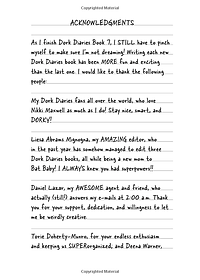 Acknowledgments
ACKNOWLEDGMENTS
As I finish Dork Diaries Book 7, I STILL have to pinch
myself to make sure I'm not dreaming! Writing each new
Dork Diaries book has been MORE fun and exciting
than the last one. I would like to thank the following
people:
My Dork Diaries fans all over the world, who love
Nikki Maxwell as much as I do! Stay nice, smart, and
DORKY!
Liesa Abrams Mignogna, my AMAZING editor, who
in the past year has somehow managed to edit three
Dork Diaries books, all while being a new mom to
Bat Baby! I ALWAYS knew you had superpowers!!
Daniel Lazar, my AWESOME agent and friend, who
actually (still!) answers my e-mails at 2:00 a.m. Thank
you for your support, dedication, and willingness to let
me be weirdly creative.
Torie Doherty-Munro, for your endless enthusiasm
and keeping us SUPERorganised, and Deena Warner,